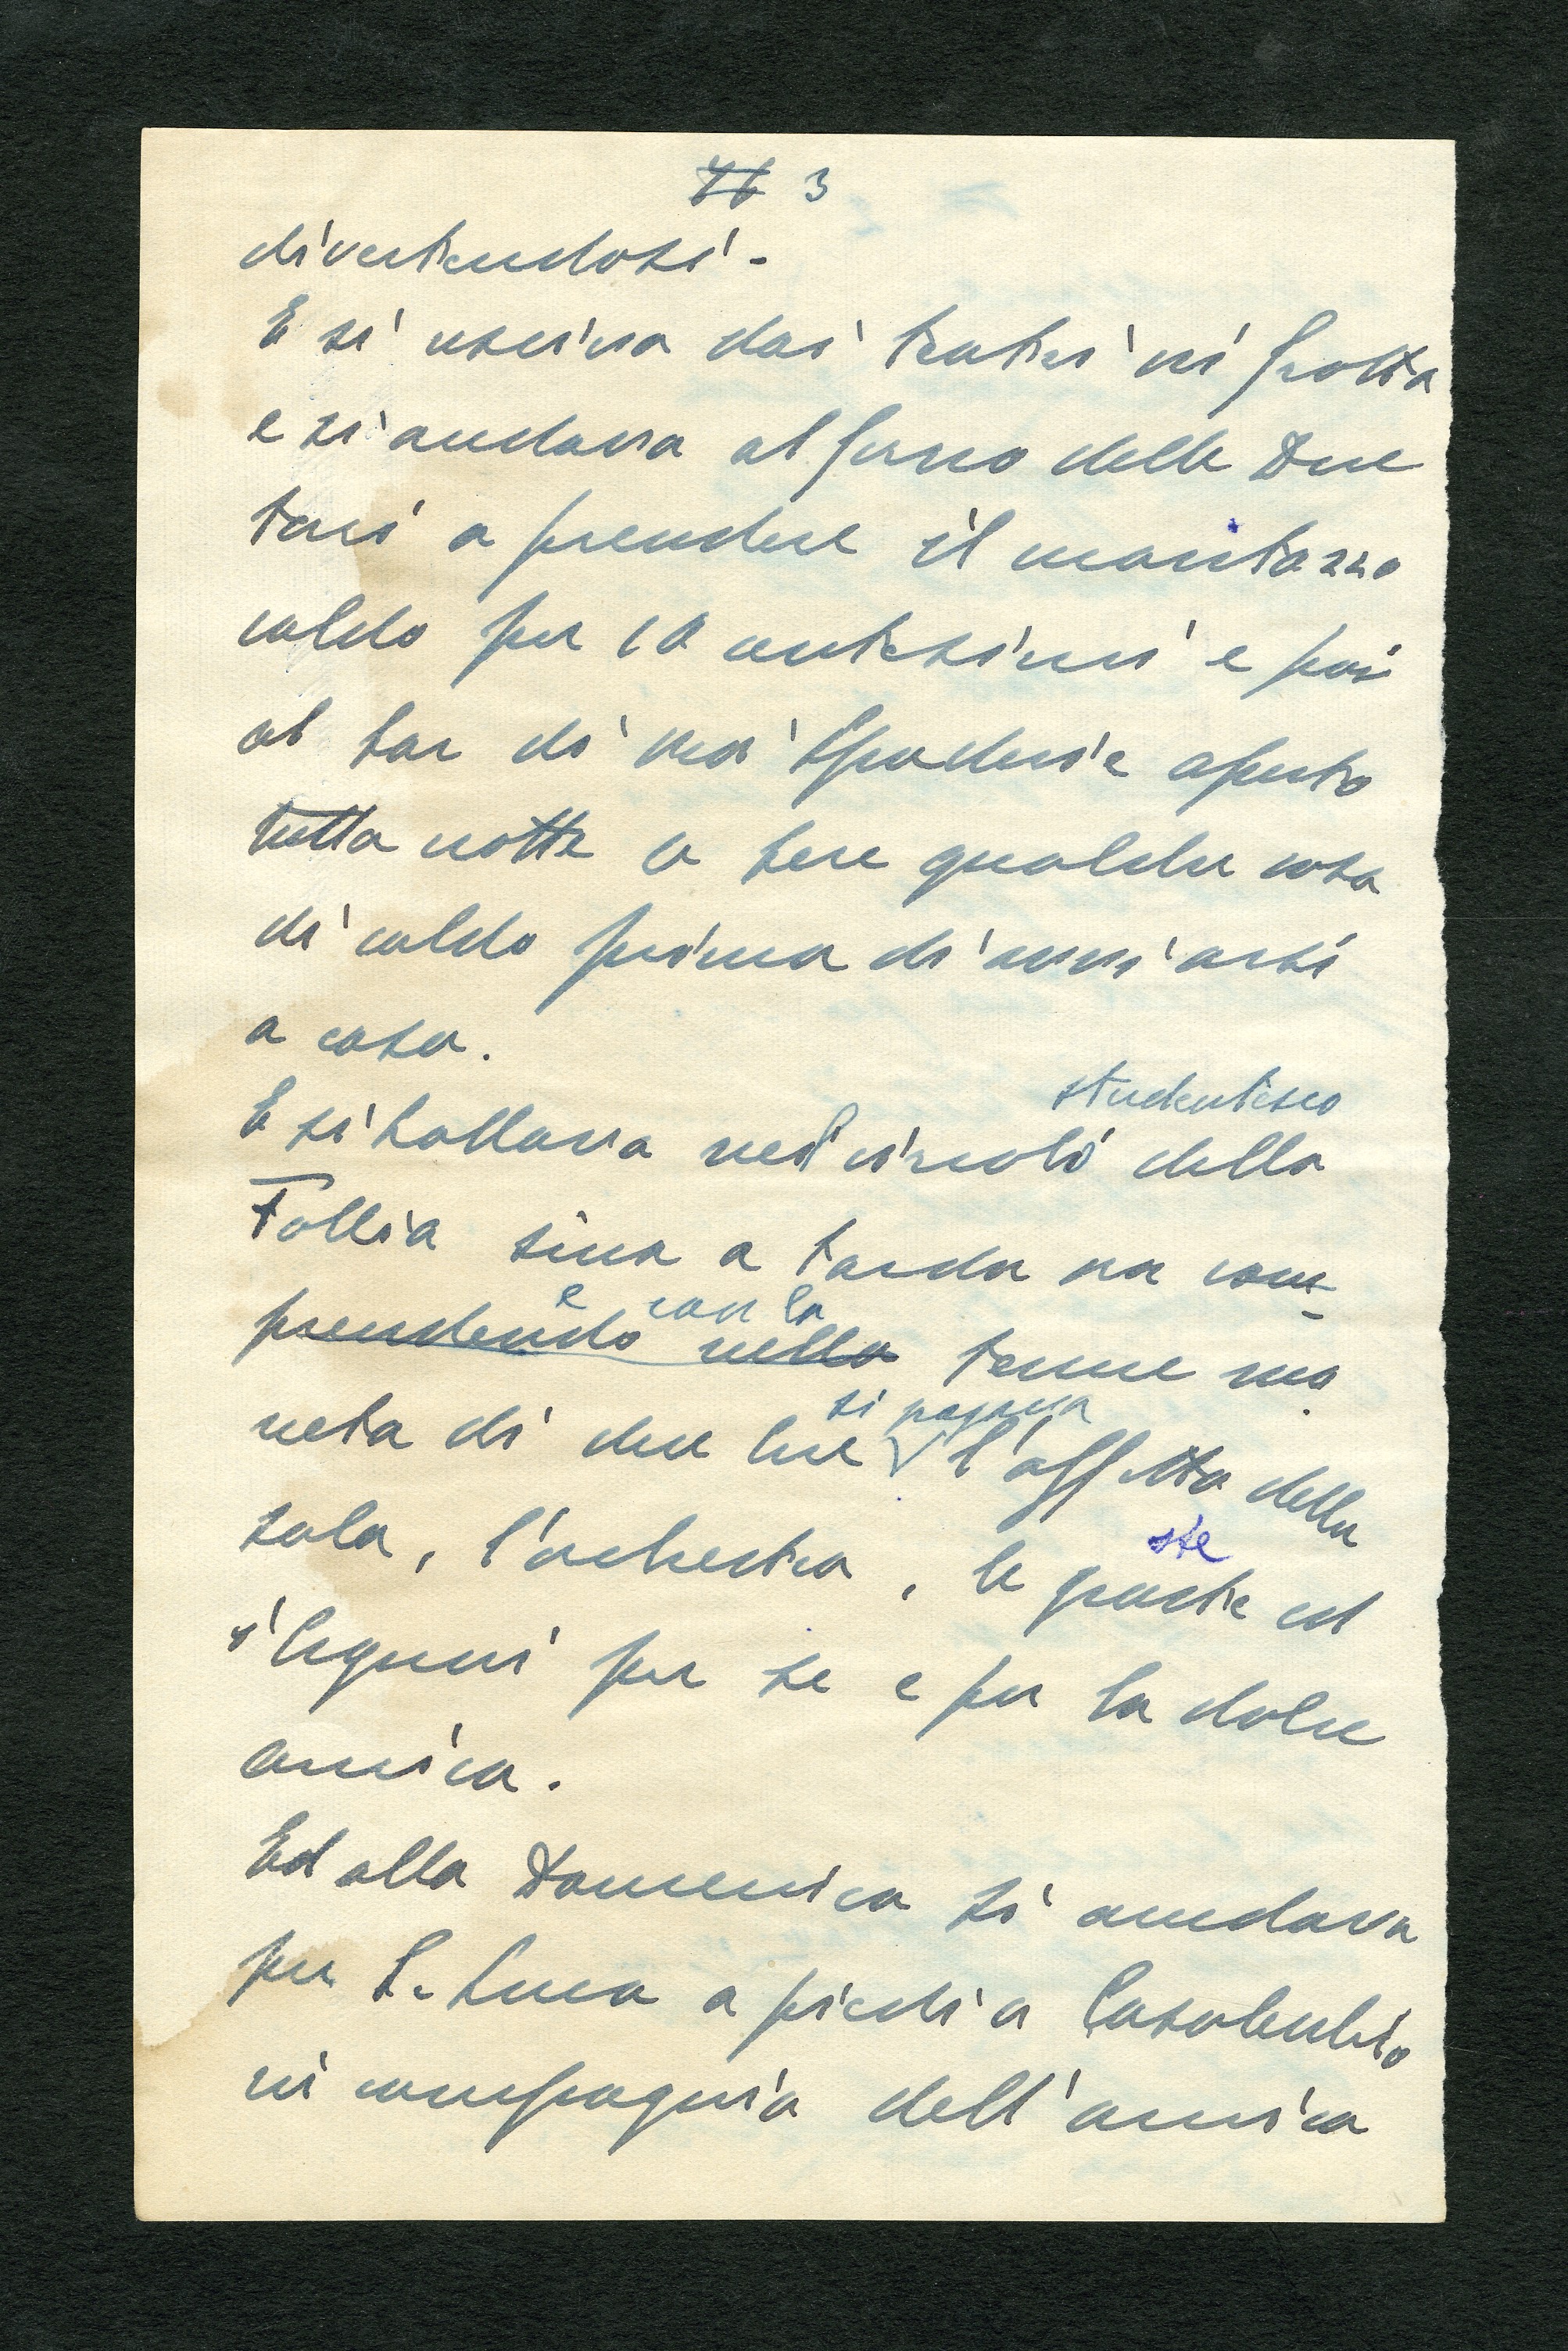 3
divertendosi.
E si usciva dai teatri in frotta
e si andava al forno delle Due
tori a prendere il montazzo
caldo per 10 centesimi e poi
al bar di via Spaderie aperto
tutta notte a bere qualche cosa
di caldo prima di avviarsi
a casa.
studentesco
E si ballava nel circolo della
Follia sino a tarda ora com-
e con la
prendendo nella tenue mo
si pagava
neta di due lire l'affitto della
ste
sala, l'orchestra, le paste ed
i liquori per se e per la dolce
amica.
Ed alla Domenica si andava
per S. Luca a piedi a Casalecchio
in compagnia dell'amica